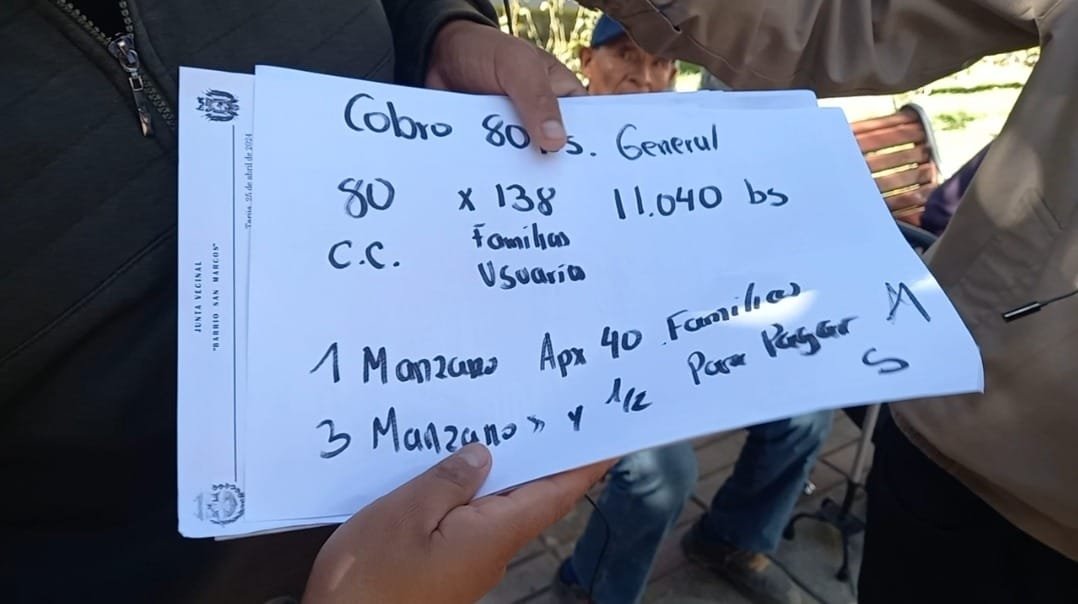 Cobro 80 bs. General
80 x 138 11.040 bs
C.C. Familias
Usuaria
1 Manzano Apx 40 Familias
3 Manzanos y 1/2 Para Pagar
A
S
JUNTA VECINAL
"BARRIO SAN MARCOS"
Tarija, 25 de abril de 2024